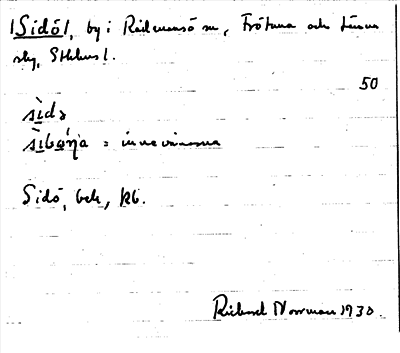 |Sidö|, by i Rådmansö sn, Frötuna och Länna
skg, Sthlms l.
50
sìdə
sìbo̱ŋa = invånarna
Sidö, bek, kb.
Rickard Norrman 1930.